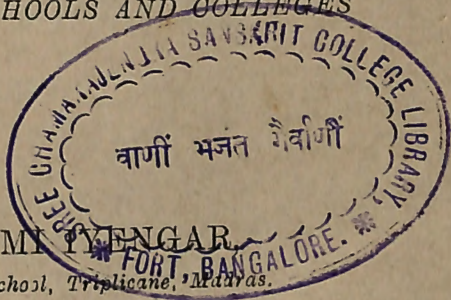 HOOLS AND COLLEGES
SREE CHAMARAJENDRA SANSKRIT COLLEGE LIBRARY,
वाणीं भजत गैर्वाणीं
FORT, BANGALORE.
MI IYENGAR,
chool, Triplicane, Madras.